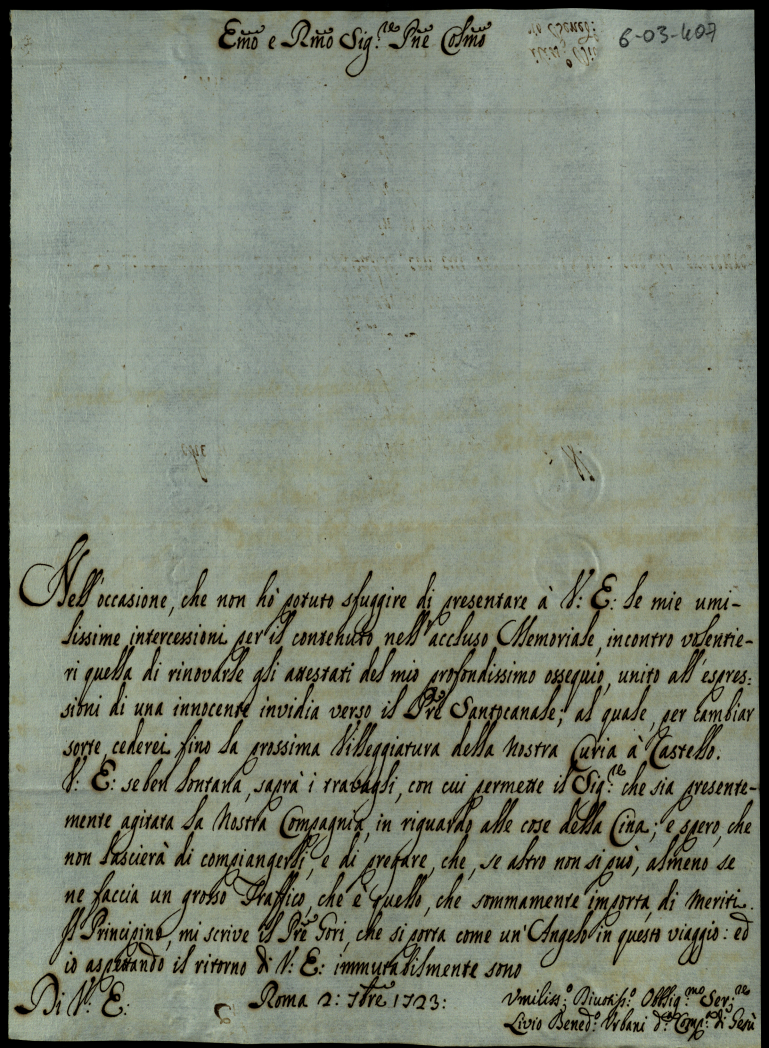 Emõ e Rmõ Sig.re Pñe Colmõ
6-03-407
Nell'occasione, che non hò potuto sfuggire di presentare à V: E: le mie umi-
lissime intercessioni per il contenuto nell'accluso Memoriale, incontro volentie-
ri quella di rinovarle gli attestati del mio profondissimo ossequio, unito all'espres:
sioni di una innocente invidia verso il Prẽ Santocanale; al quale, per cambiar
sorte, cederei fino la prossima Villeggiatura della Nostra Curia à Castello.
V: E: se ben lontana, saprà i travagli, con cui permette il Sig.re che sia presente-
mente agitata la Nostra Compagnia, in riguardo alle cose della Cina; e spero, che
non lascierà di compiangerli, e di pregare, che, se altro non si può, almeno se
ne faccia un grosso Traffico, che è quello, che sommamente importa, di meriti.
Il Principino, mi scrive il Prẽ Gori, che si porta come un'Angelo in questo viaggio: ed
io aspettando il ritorno di V: E: immutabilmente sono
Di V: E:
Roma 2: 7bre 1723:
Umiliss:o Divotiss:o Obblig:mo Ser:re
Livio Bened:o Urbani d:a Comp:a di Gesù